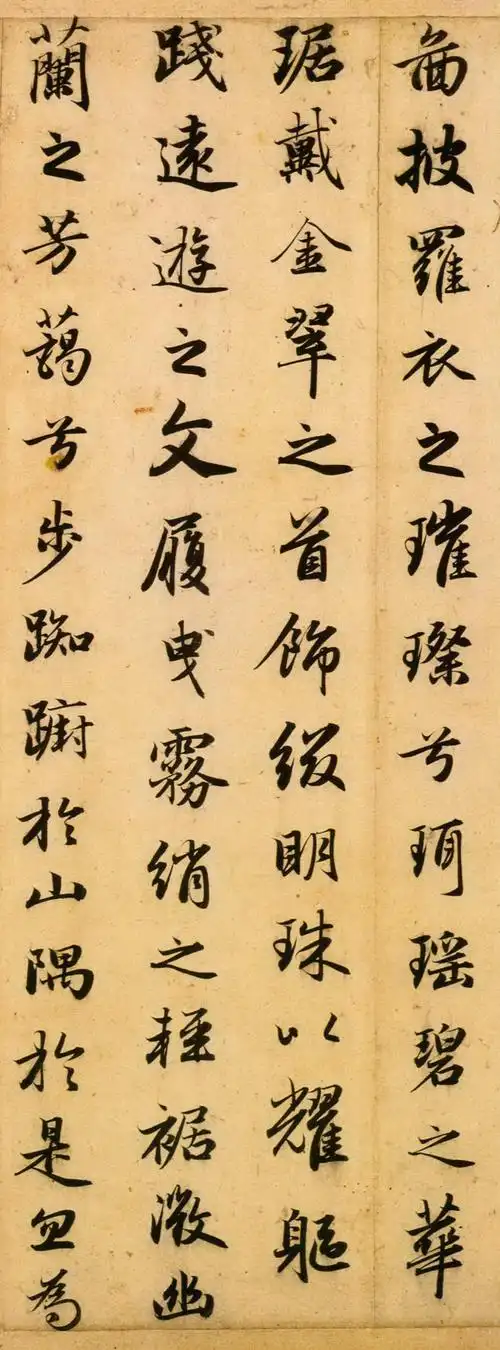 圖披羅衣之璀璨兮珥瑤碧之華
琚戴金翠之首飾綴明珠以耀軀
踐遠遊之文履曳霧綃之輕裾微幽
蘭之芳藹兮步踟躕於山隅於是忽焉